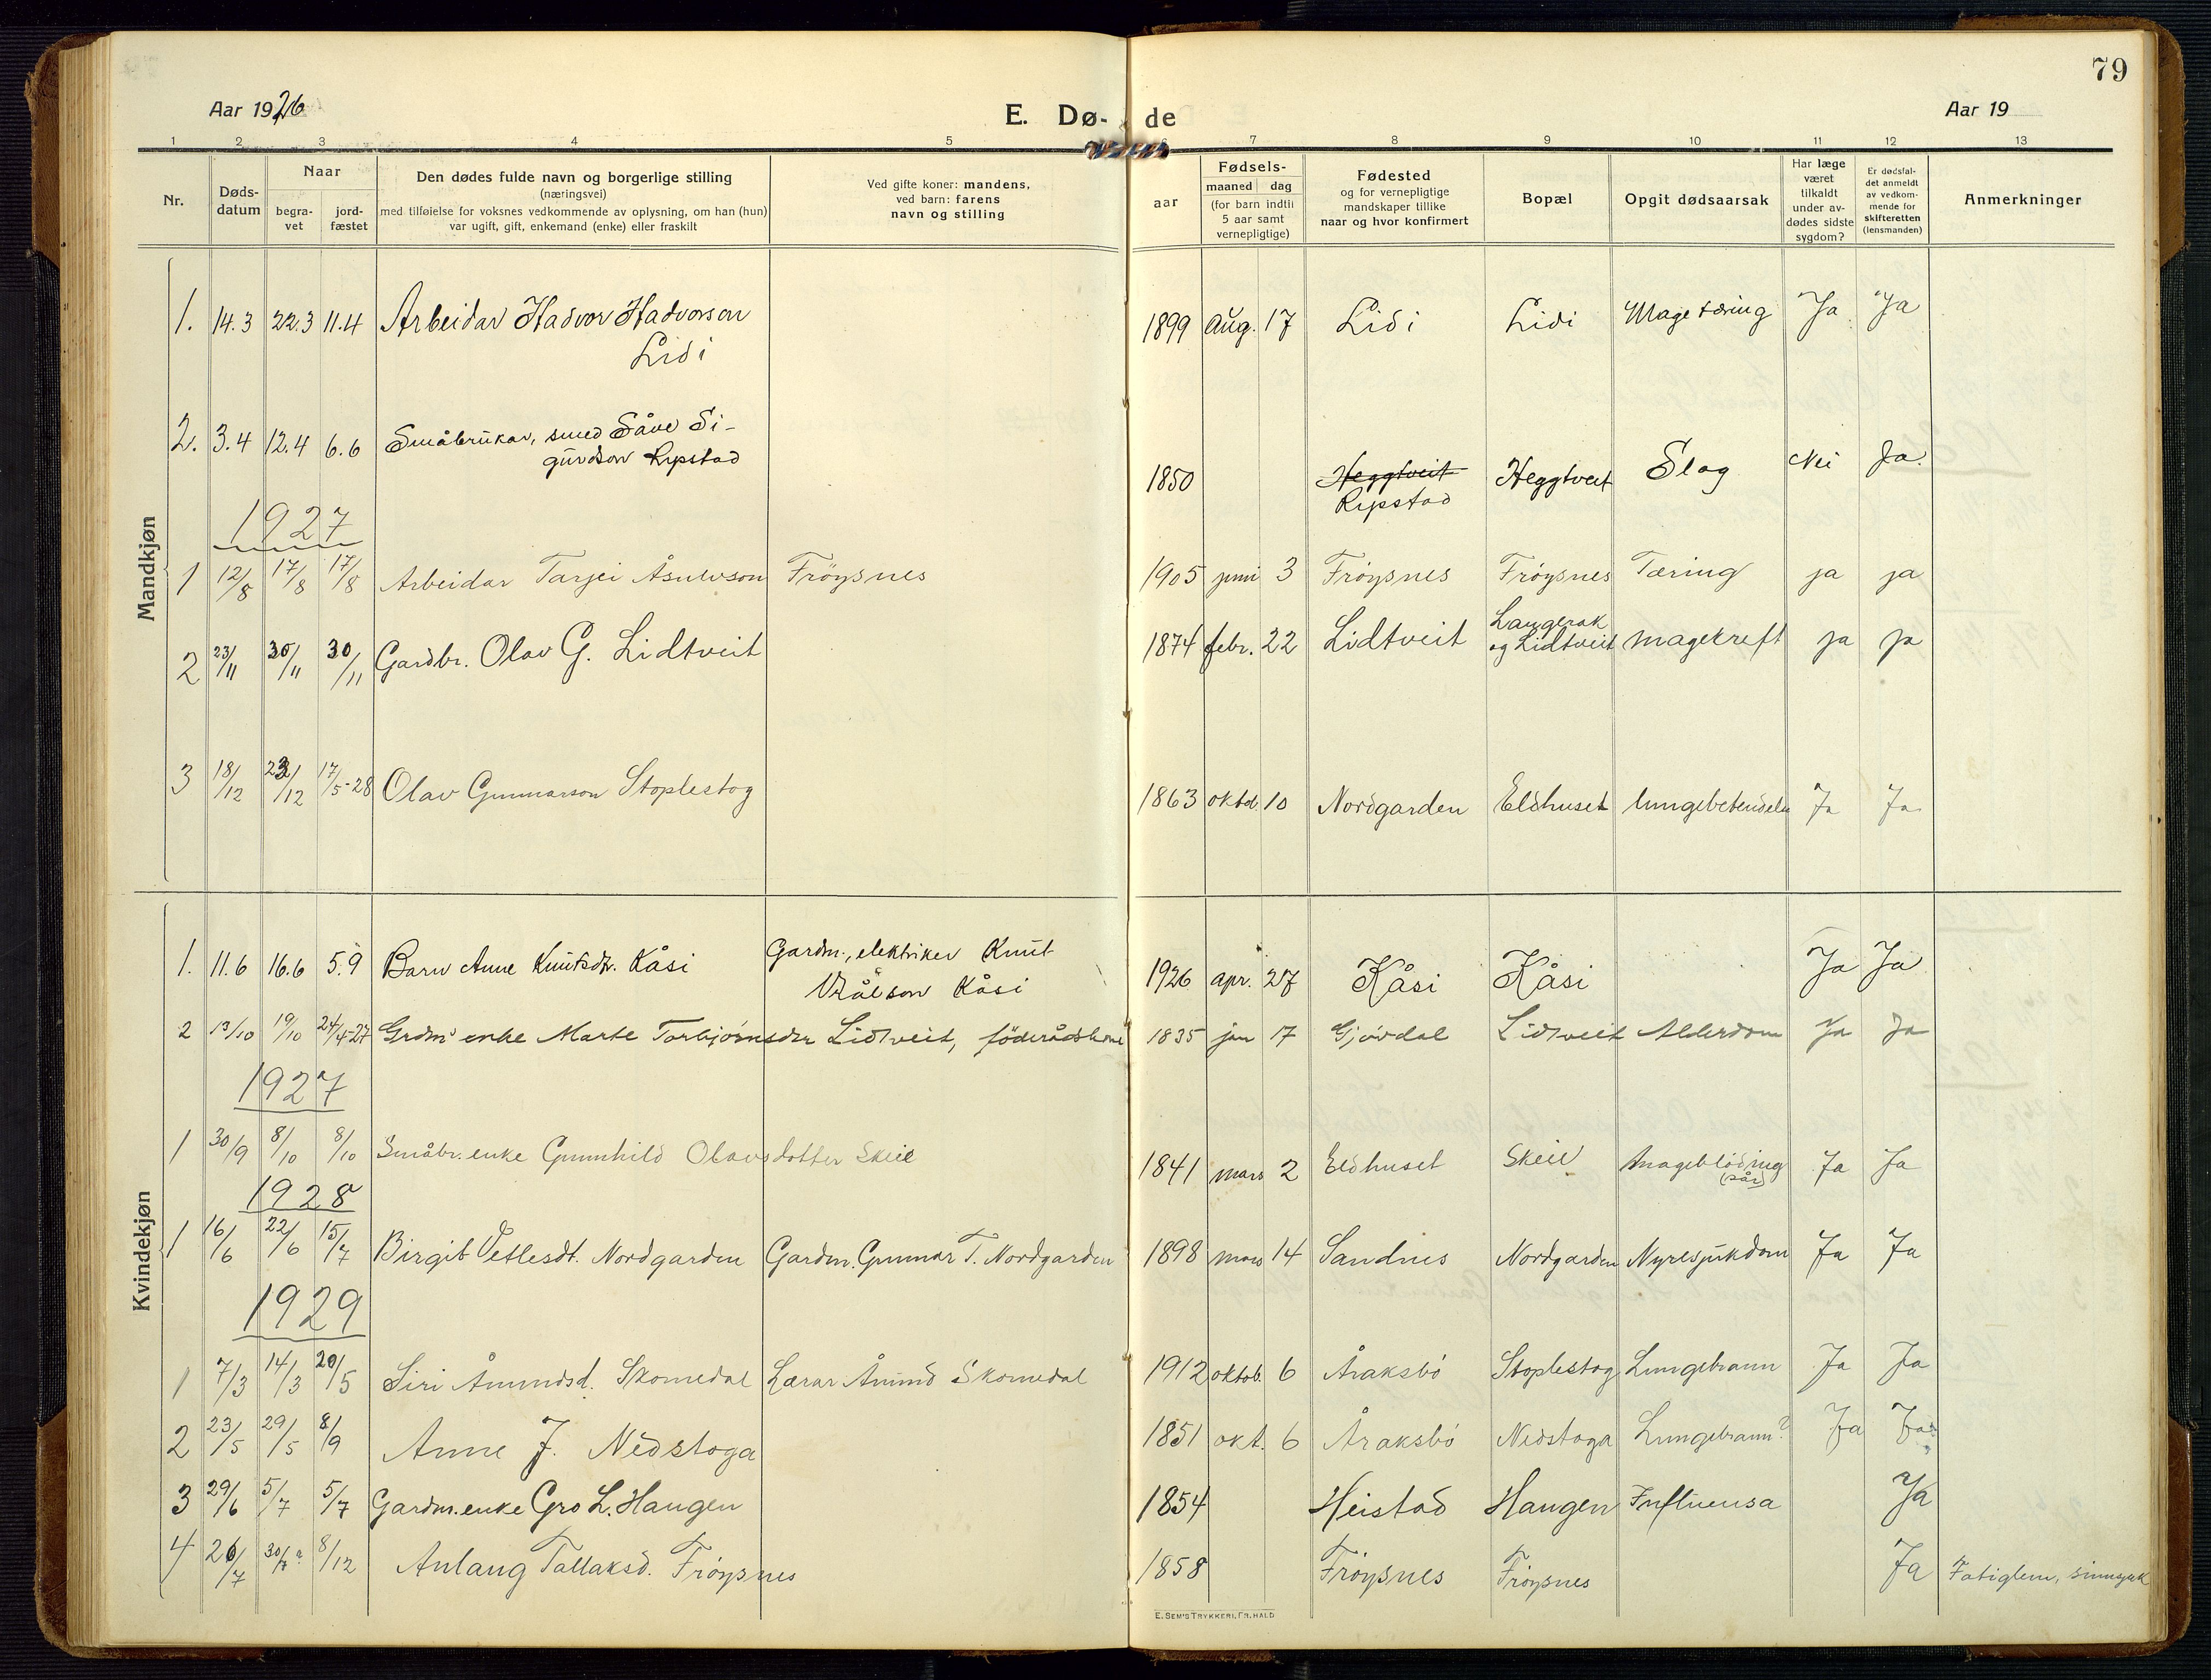 79
Aar 1926
E. Dø-
de
Aar 19
1 2 3 4 5 7 8 9 10 11 12 13
Nr.
Døds-
datum
Naar
begra-
vet
jord-
fæstet
Den dødes fulde navn og borgerlige stilling
(næringsvei)
med tilføielse for voksnes vedkommende av oplysning, om han (hun)
var ugift, gift, enkemand (enke) eller fraskilt
Ved gifte koner: mandens,
ved barn: farens
navn og stilling
Fødsels-
aar
maaned dag
(for barn indtil
5 aar samt
vernepligtige)
Fødested
og for vernepligtige
mandskaper tillike
naar og hvor konfirmert
Bopæl
Opgit dødsaarsak
Har læge
været
tilkaldt
under av-
dødes sidste
sygdom?
Er dødsfal-
det anmeldt
av vedkom-
mende for
skifteretten
(lensmanden)
Anmerkninger
Mandkjøn
1. 14.3 22.3 11.4 Arbeidar Hadvor Hadvorson 1899 Aug. 17 Lidi Lidi Magetæring Ja Ja
Lidi
2. 3.4 12.4 6.6 Småbrukar, smed Såve Si-
gurdson Rysstad 1850 Heggtveit Heggtveit Slag Nei Ja.
Rysstad
1927
1 12/8 17/8 17/8 Arbeidar Tarjei Åsulvson Frøysnes 1905 juni 3 Frøysnes Frøysnes Tæring ja ja
2 23/11 30/11 30/11 Gardbr. Olav G. Lidtveit 1874 febr. 22 Lidtveit Langerak
og Lidtveit magekreft ja ja
3 18/12 23/12 17/5-28 Olav Gunnarson Stoplestog 1863 oktob. 10 Nordgarden Eldhuset lungebetendelse Ja Ja
Kvindekjøn
1. 11.6 16.6 5.9 Barn Anne Knutsdr. Kåsi Gardm., elektriker Knut
Vrålson Kåsi 1926 apr. 27 Kåsi Kåsi Ja Ja
2 13/10 19/10 24/4-27 Grdm's enke Marte Torbjørnsdtr Lidtveit, föderådskone 1835 jan 17 Gjövdal Lidtveit Alderdom Ja Ja
1927
1 30/9 8/10 8/10 Småbr. enke Gunnhild Olavsdotter Skeie 1841 mars 2 Eldhuset Skeie mageblöding Ja Ja
(sår)
1928
1 16/6 22/6 15/7 Birgit Vetlesdt. Nordgarden Gardm. Gunnar T. Nordgarden 1898 mars 14 Sandnes Nordgarden Nyresjukdom Ja Ja
1929
1 7/3 14/3 20/5 Siri Åmundsd. Skomedal Lærar Åmund Skomedal 1912 oktob. 6 Åraksbö Stoplestog Lungebrann Ja Ja
2 23/5 29/5 8/9 Anne J. Nedstoga 1851 okt. 6 Åraksbö Nedstoga Lungebrann? Ja Ja
3 29/6 5/7 5/7 Gardm. enke Gro L. Haugen 1854 Heistad Haugen Influensa Ja
4 26/7 30/7? 8/12 Anlaug Tallaksd. Frøysnes 1858 Frøysnes Frøysnes Ja Fatiglem, sinnsjuk
E. SEM'S TRYKKERI, FR.HALD